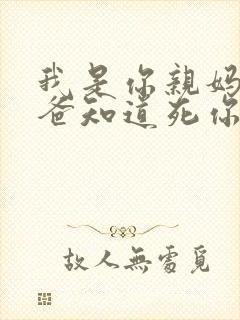 我是你親媽
爸知道死你
故人無處覓